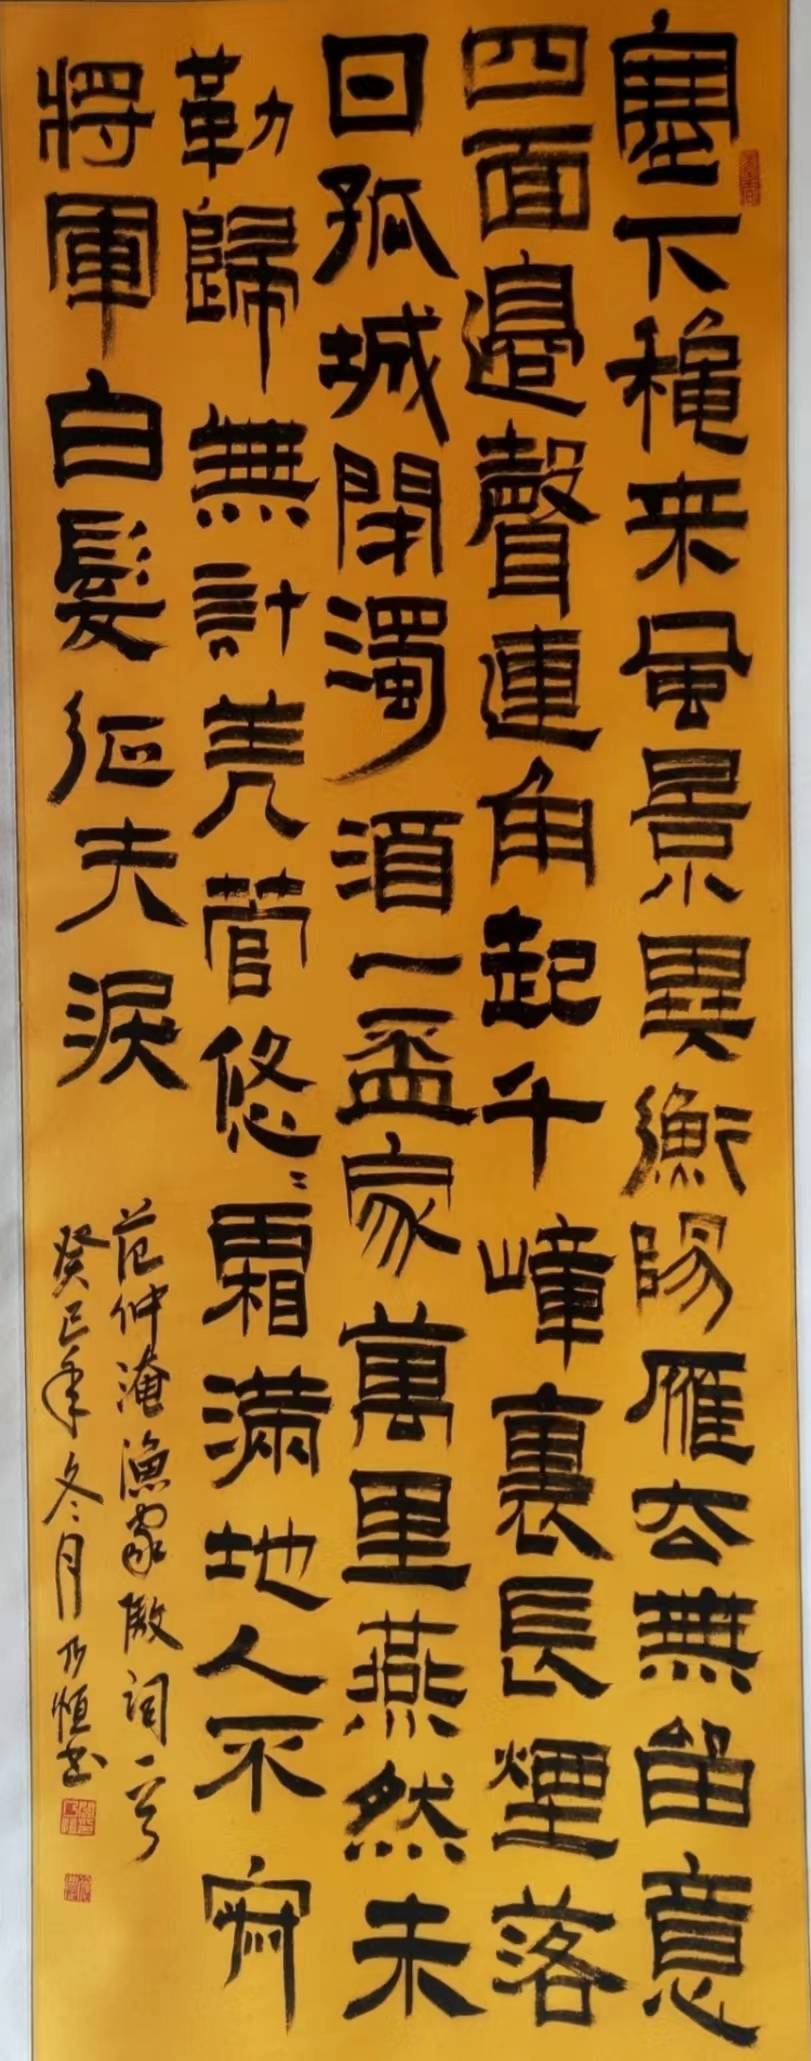 塞下穐来風景異衡陽雁去無留意
四面邊聲連角起千嶂裏長煙落
日孤城閉濁酒一盃家萬里燕然未
勒歸無計羌管悠〻霜滿地人不寐
將軍白髮征夫淚
范仲淹漁家傲詞一首
癸巳年冬月乃恒书